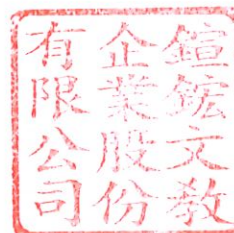 鍹鋐文教
企業股份
有限公司